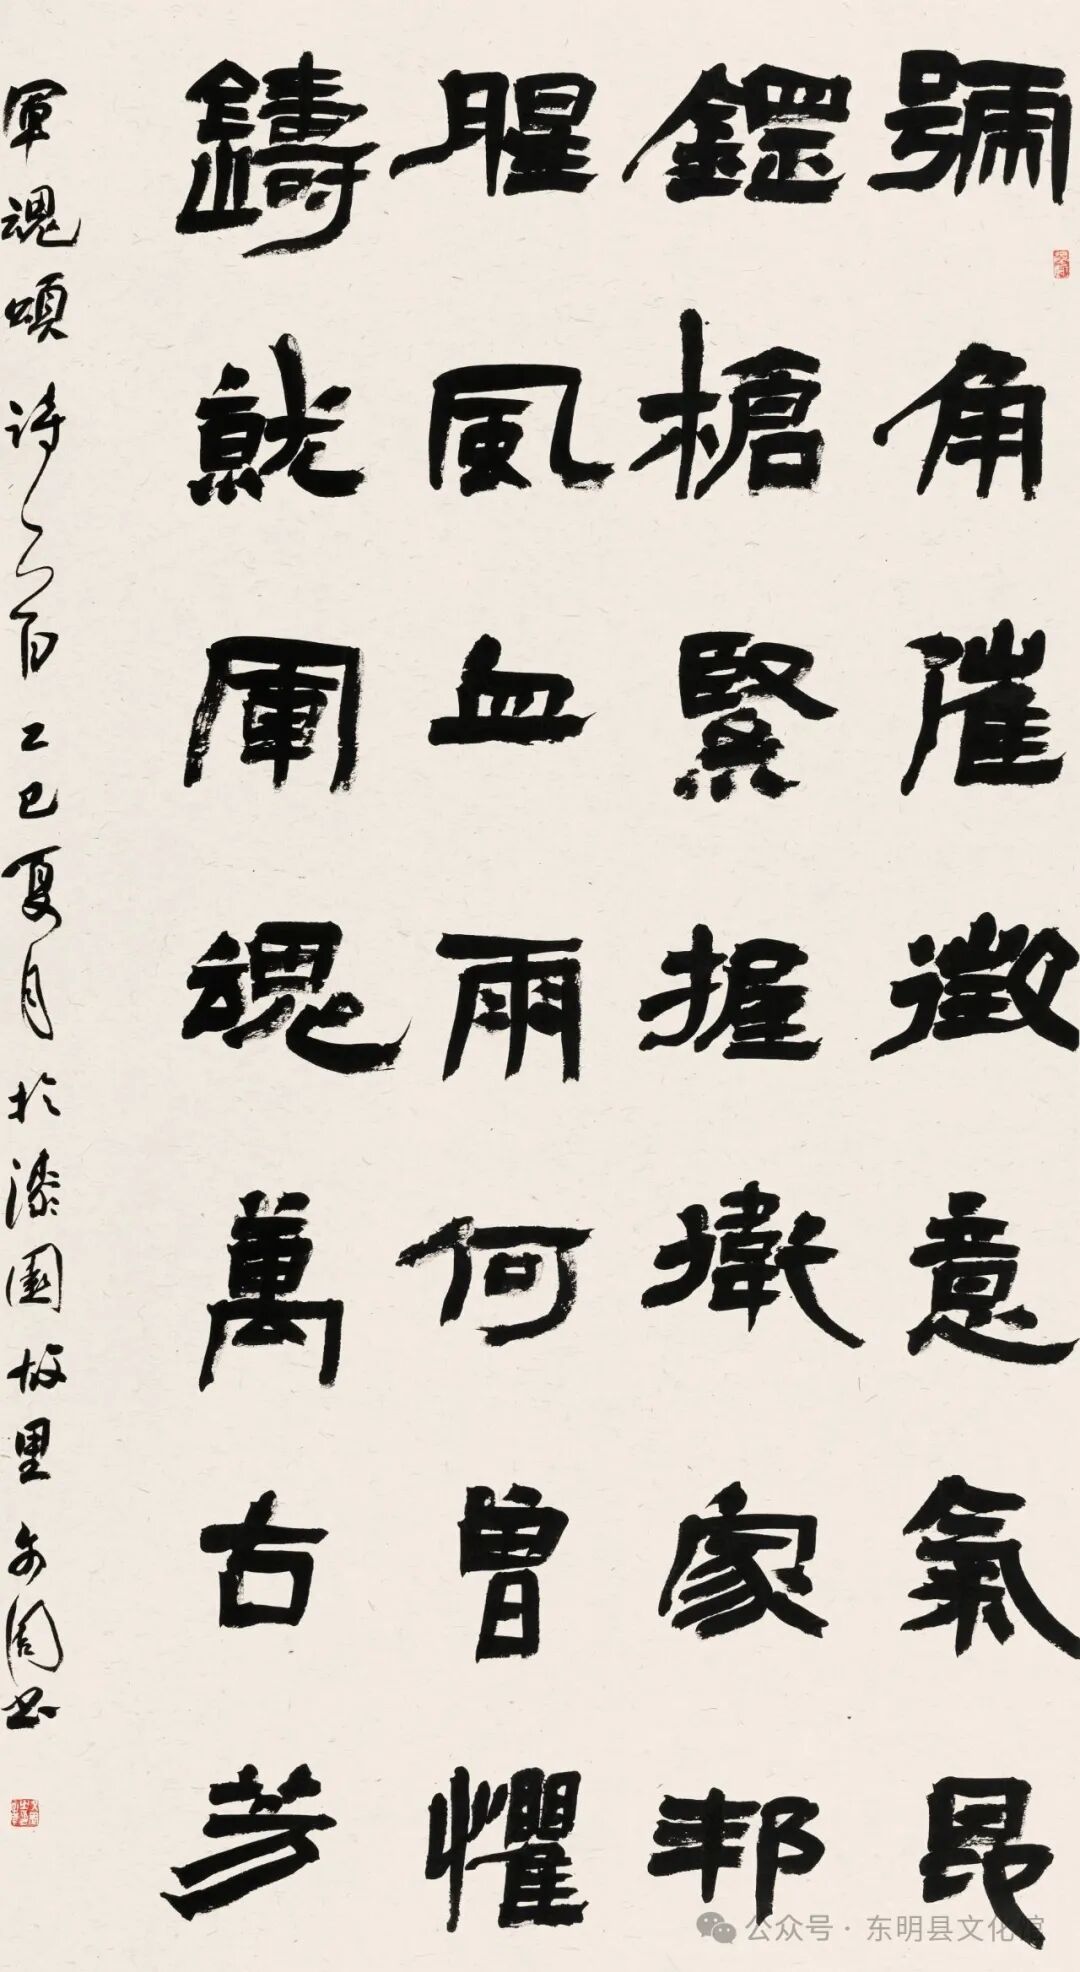 號角催徵意氣昂
鎠槍緊握衛家邦
腥風血雨何曾懼
鑄就軍魂萬古芳
軍魂頌詩一首乙巳夏月於漆園故里周書
公众号·东明县文化馆